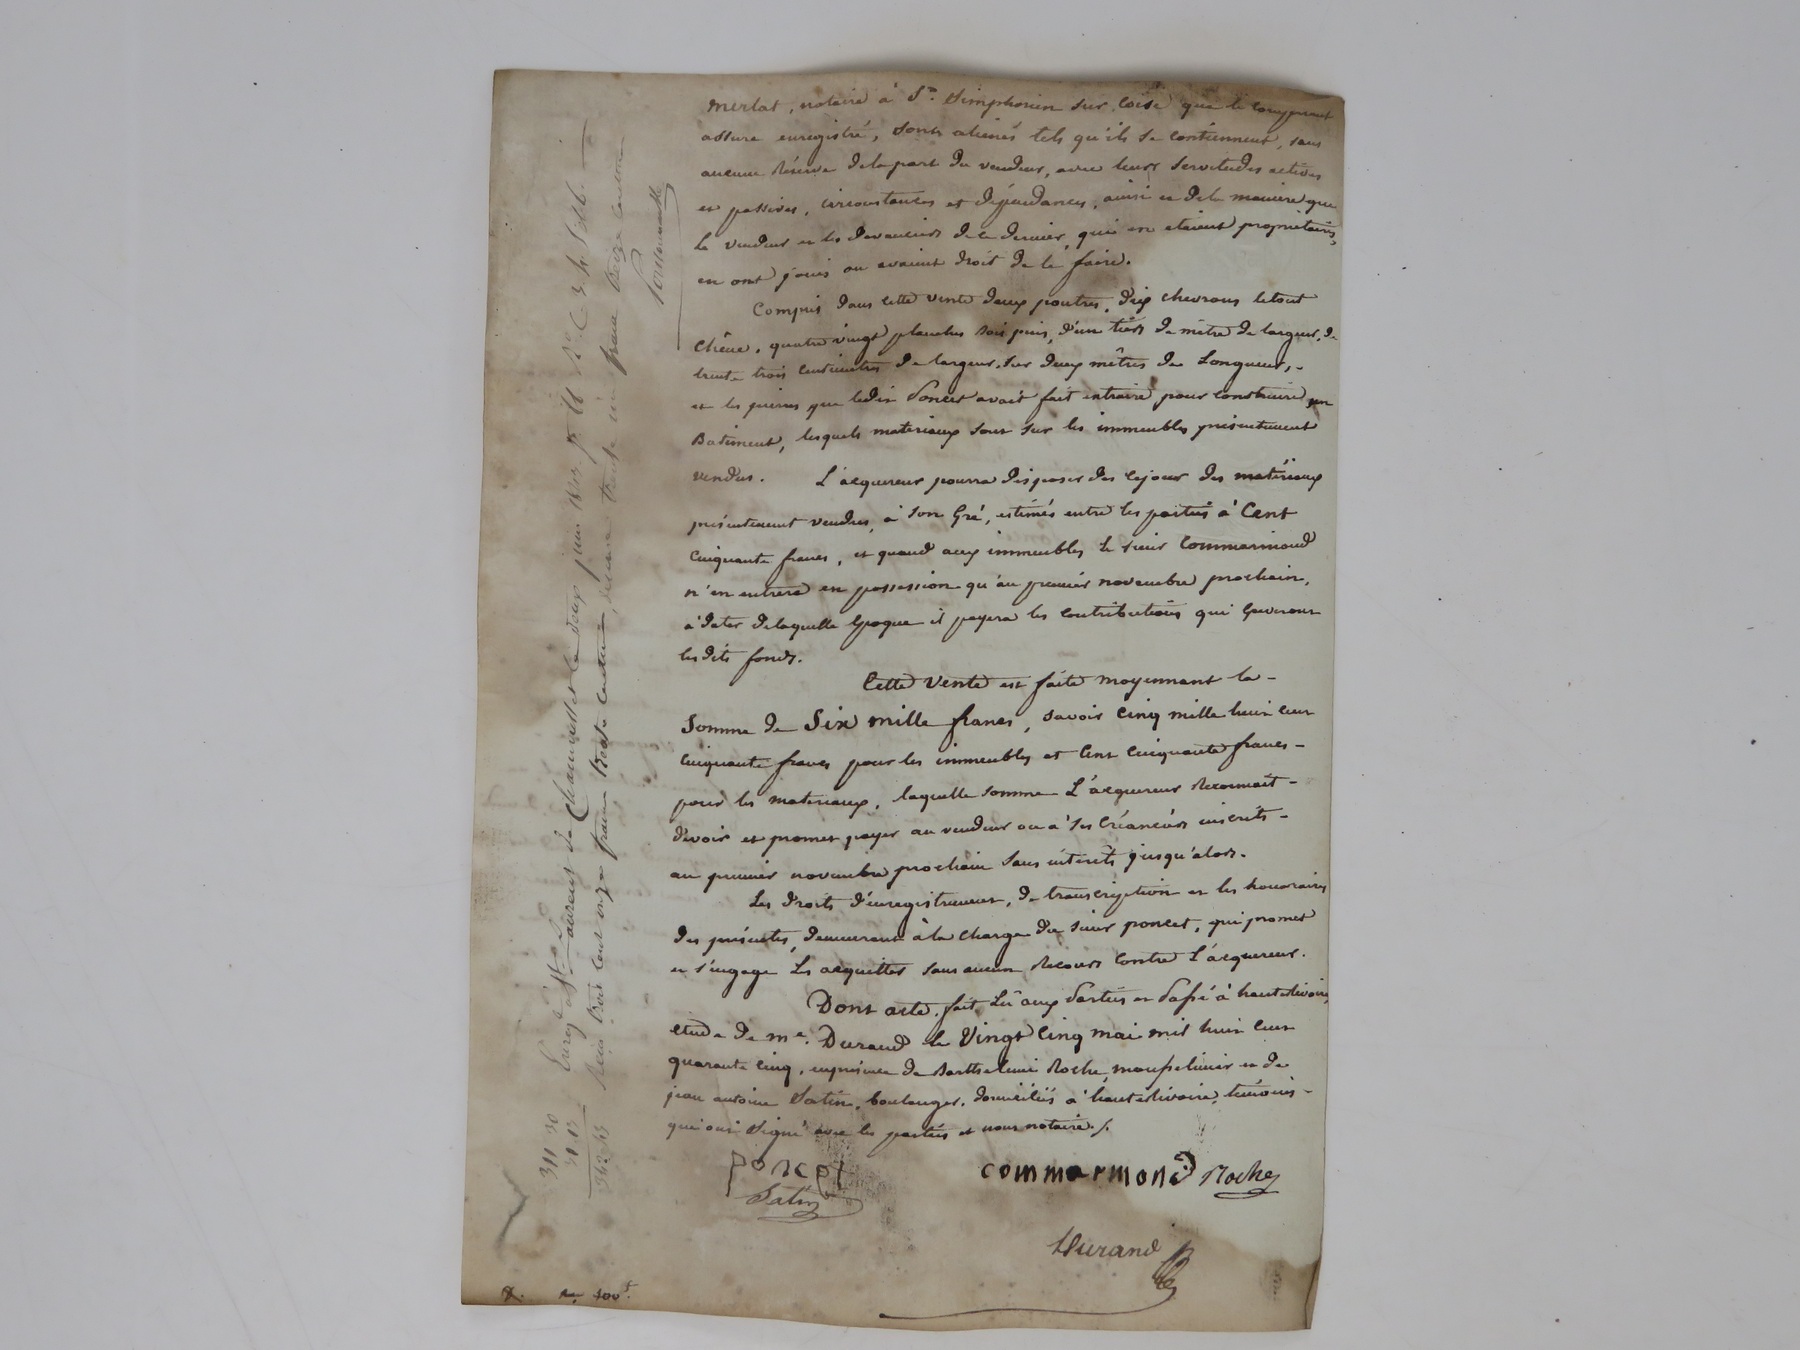 merlat, notaire à St. Simphorien sur Coise que le comparant
assure enregistré, sont aliénés tels qu'ils se contiennent, sans
aucune réserve de la part du vendeur, avec leurs servitudes actives
et passives, circonstances et dépendances, ainsi et de la manière que
le vendeur et les devanciers de ce dernier, qui en étaient propriétaires,
en ont joui ou avaient droit de le faire.
Compris dans cette vente deux poutres, dix chevrons le tout
chêne, quatre vingt planches bois pin, d'un tiers de mètre de largeur, de
trente trois centimètres de largeur, sur deux mètres de Longueur,
et les pierres que ledit Poncet avait fait extraire pour construire un
Batiment, lesquels materiaux sont sur les immeubles présentement
vendus. L'acquereur pourra disposer dès ce jour des matériaux
présentement vendus, à son Gré, estimés entre les parties à Cent
cinquante francs, et quand aux immeubles le sieur Commarmond
n'en entrera en possession qu'au premier novembre prochain,
à dater delaquelle époque il payera les contributions qui
lesdits fonds.
Cette vente est faite moyennant la
Somme de Six mille francs, savoir Cinq mille huit cent
cinquante francs pour les immeubles et Cent cinquante francs
pour les materiaux, laquelle somme L'acquereur reconnait
devoir et promet payer au vendeur ou à ses Créanciers inscrits
au premier novembre prochain sans intérêts jusqu'alors.
Les droits d'enregistrement, de transcription et les honoraires
des présentes, demeurent à la charge du sieur poncet, qui promet
et s'engage les acquitter sans aucun Recours Contre L'acquereur.
Dont acte, fait, Lû aux Parties et Passé à hauterivoire,
étude de me. Durand le Vingt Cinq mai mil huit cent
quarante cinq, en présence de Barthelemi Roche, mousselinier et de
jean antoine Satin, boulanger, domiciliés à hauterivoire, témoins
qui ont signé avec les parties et nous notaire./.
poncet commarmond Roche
Satin
Durand
Enregé à St Laurent de Chamousset le deux juin 1845
Reçu trois cent onze francs trente centimes, décime trente un francs treize centimes
311 30
31 13
342 43